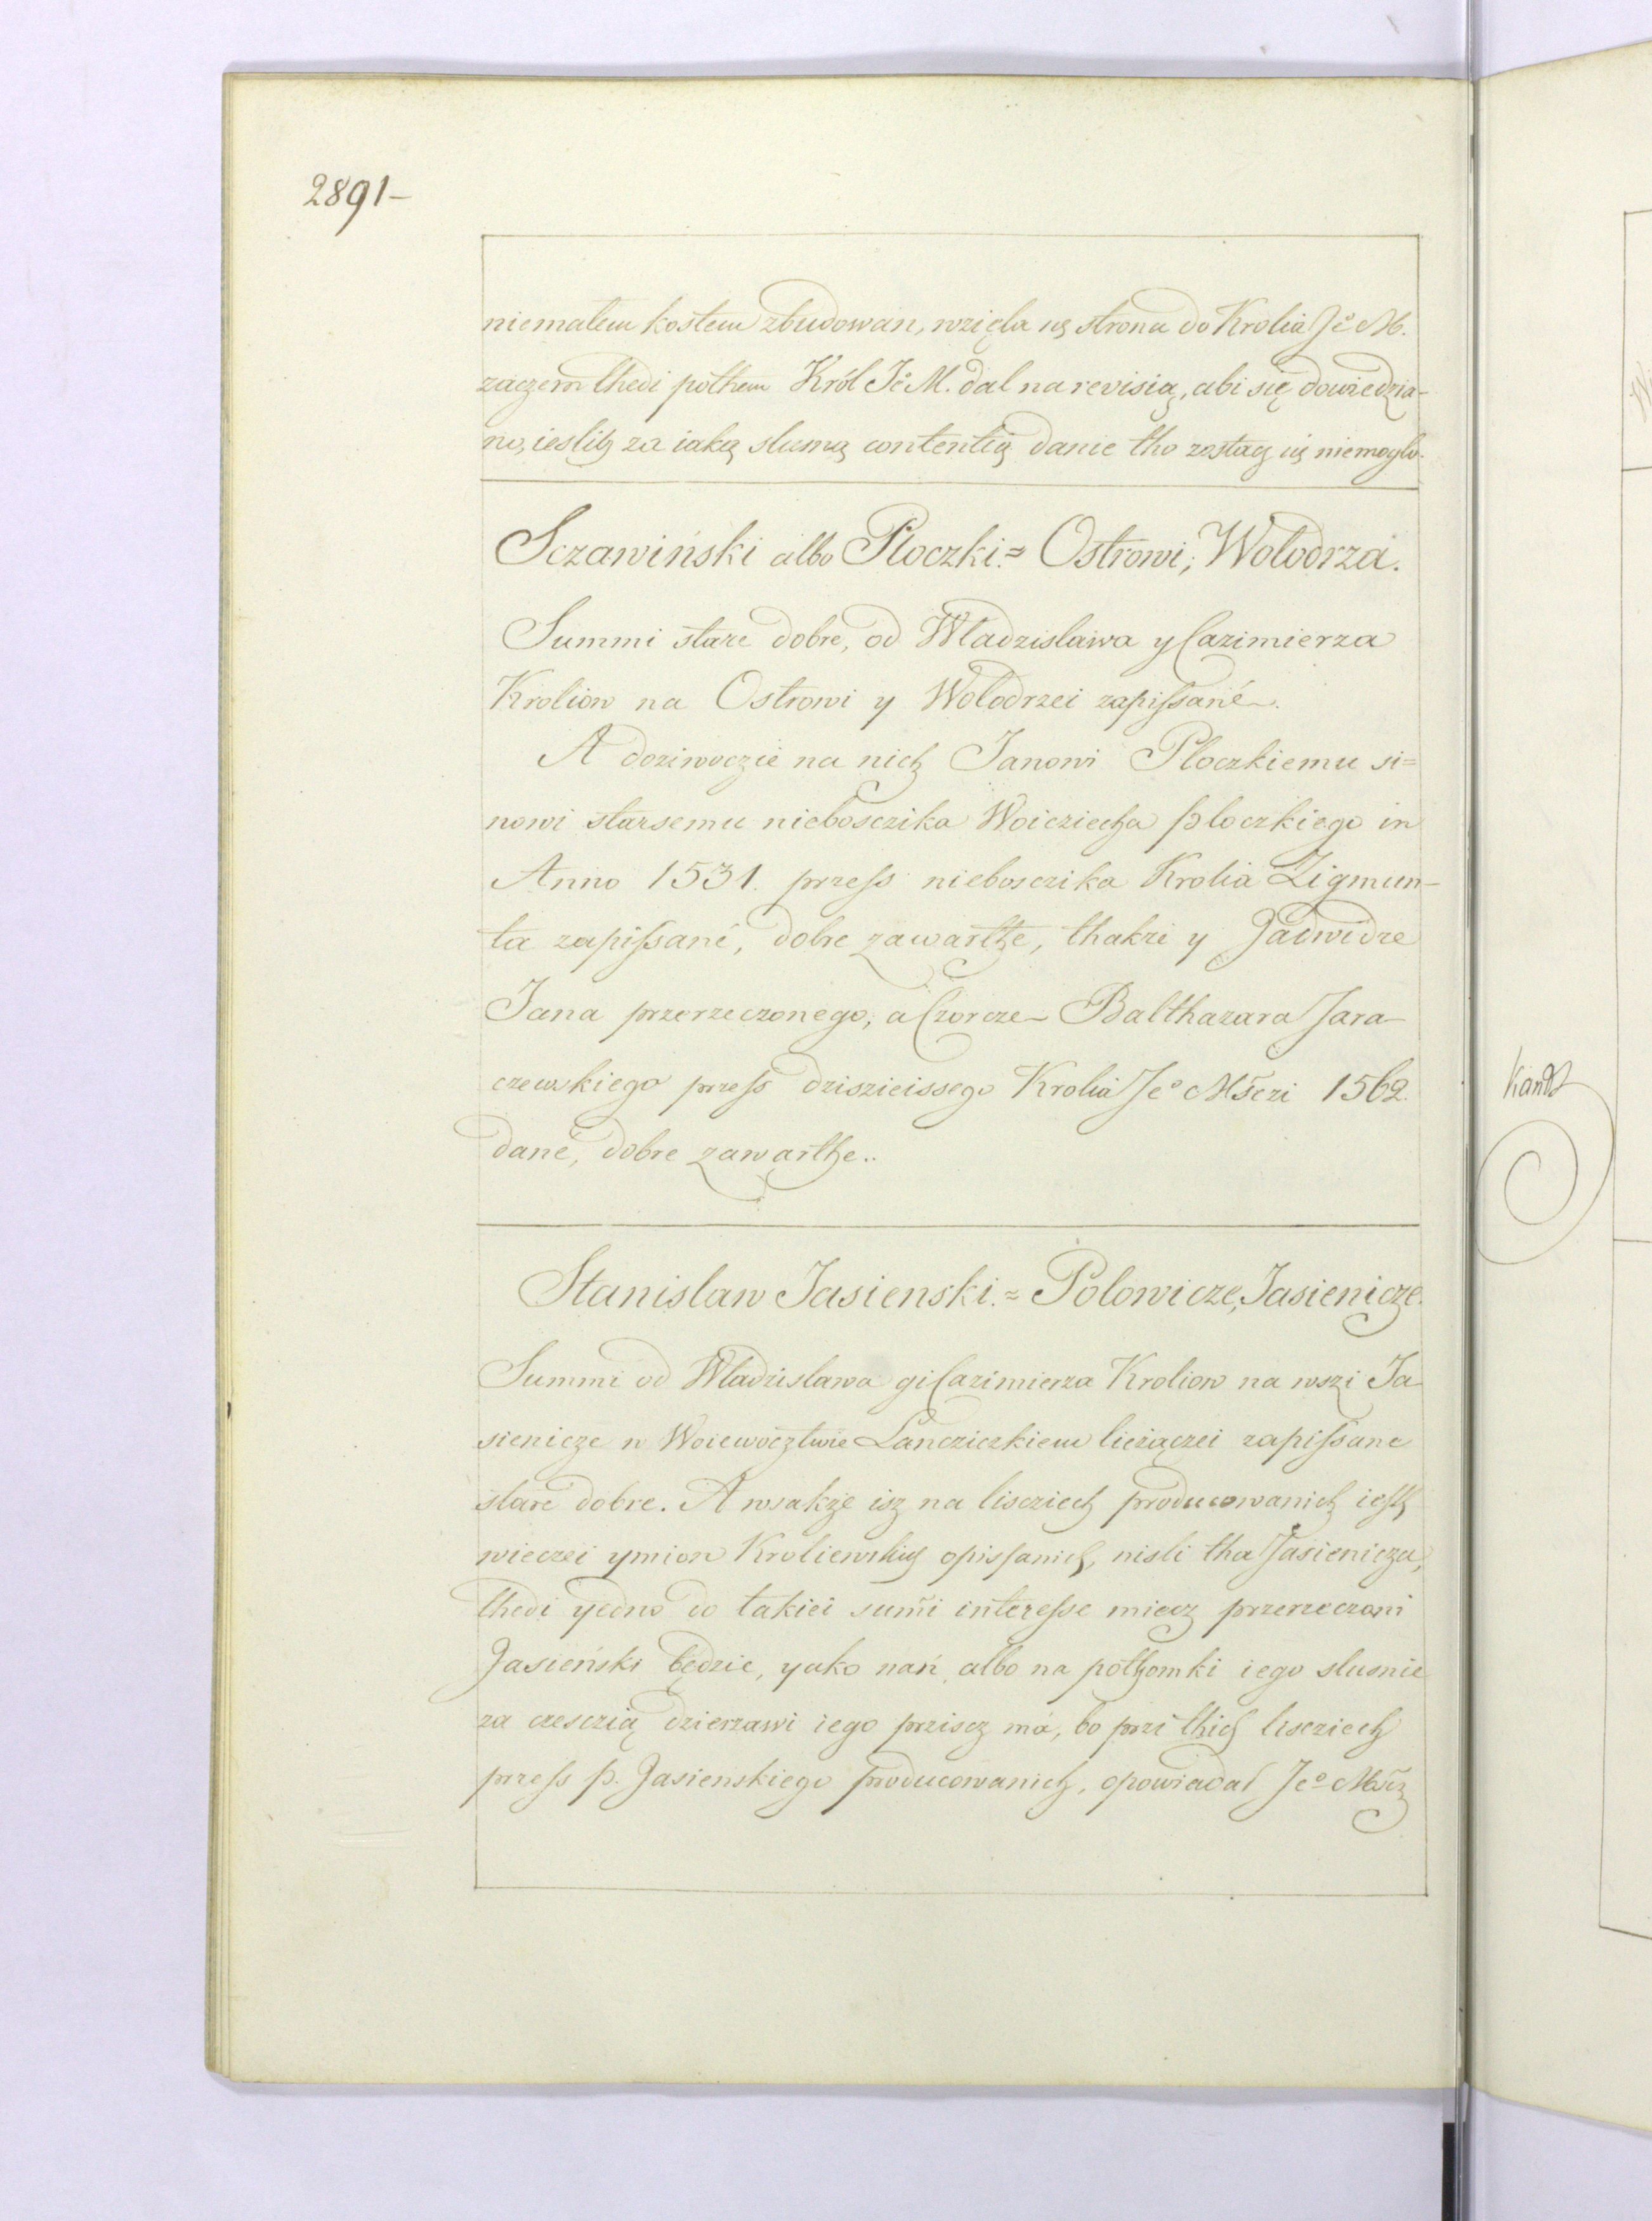 2891-
niemałem kostem zbudowan, wzięła się strona do Krolia Je° M.
zaczem thedi pothem Król Je° M. dal na revisią, abi się dowiedzia-
no, ieslib za iaką slusną contentią danie tho zostacz się niemoglo.
Sczawiński albo Ploczki.= Ostrowi, Wolodrza.
Summi stare dobre, od Wladzislawa y Cazimierza
Krolion na Ostrowi y Wolodrzei zapissané.
A doziwoczie na nich Janowi Ploczkiemu si=
nowi starsemu nieboszczika Woiciecha ploczkiego in
Anno 1531. przess nieboszczika Krolia Zigmun-
ta zapissané, dobre zawarthe, thakze y Jadwidze
Jana przerzeczonego, a Czorcze Balthazara Jara-
czewskiego przess dziszieissego Krolia Je° Mści 1562.
dané, dobre zawarthe..
Stanislaw Jasienski.= Polowicze, Jasienicze.
Summi od Wladzislawa gi Cazimierza Krolion na wszi Ja
sienicze w Woiewocztwie Lancziczkiem lieżączei zapissane
stare dobre. A wsakże isz na lisciech producowanich iesth
wieczei ymion Kroliewskich opissanich, nisli tha Jasienicza,
thedi yedno do takiei sum̃i interesse miecz przerzeczoni
Jasieński będzie, yako nań albo na pothomki iego slusnie
za czesczią dzierzawi iego prziscz má, bo przi thich lisciech
przess p. Jasienskiego producowanich, opowiadał Je° Mścz